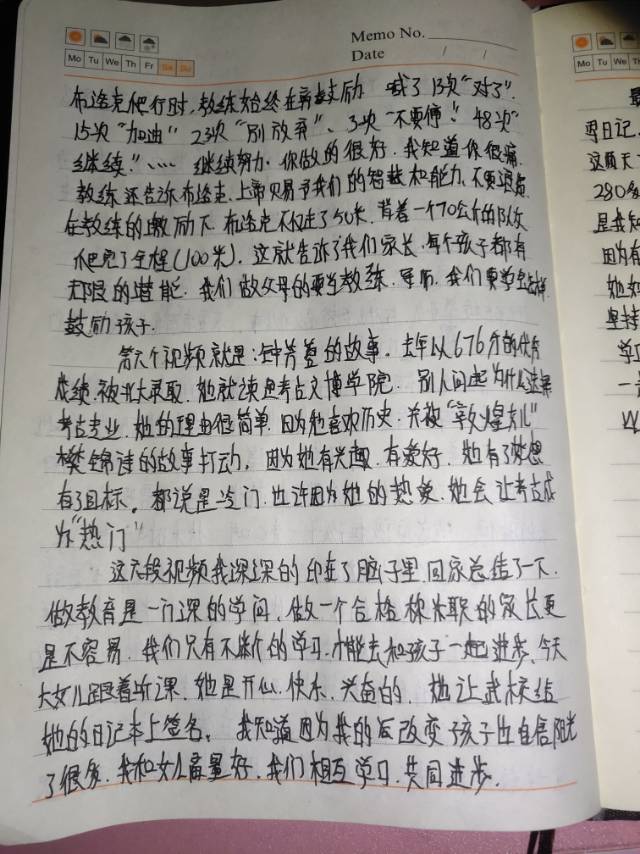 Memo No.
Date / /
Mo Tu We Th Fr Sa Su
布洛克爬行时,教练始终在旁鼓励 喊了13次“对了”.
15次“加油” 23次“别放弃”、3次“不要停”! 48次“
继续!”…… 继续努力.你做的很好.我知道你很痛.
教练还告诉布洛克.上帝贝易予我们的智慧和能力.不要浪费.
在教练的激励下.布洛克不仅走了50米.背着一个70公斤的队友
爬完了全程(100米).这就告诉了我们家长.每个孩子都有
无限的潜能.我们做父母的要当教练.导师.我们要学会怎样
鼓励孩子.
第六个视频就是:钟芳蓉的故事.去年以676分的优秀
成绩.被北大录取.她就读思考古文博学院.别人问起为什么选择
考古专业.她的理由很简单.因为她喜欢历史.并被“敦煌女儿”
樊锦诗的故事打动.因为她有兴趣.有爱好.她有了梦想
有了目标。都说是冷门.也许因为她的热爱.她会让考古成
为“热门”
这六段视频我深深的印在了脑子里.回家总结了一下.
做教育是一门深的学问.做一个合格称职的家长更
是不容易.我们只有不断的学习.才能去和孩子一起进步.今天
大女儿跟着听课.她是开心.快乐.兴奋的.她让武校给
她的日记本上签名。我知道因为我的改变孩子也自信阳光
了很多.我和女儿商量好.我们相互学习.共同进步.
Mo Tu We Th
雪日记.
这两天
280多
是我知
因为有
她如
坚持
学习